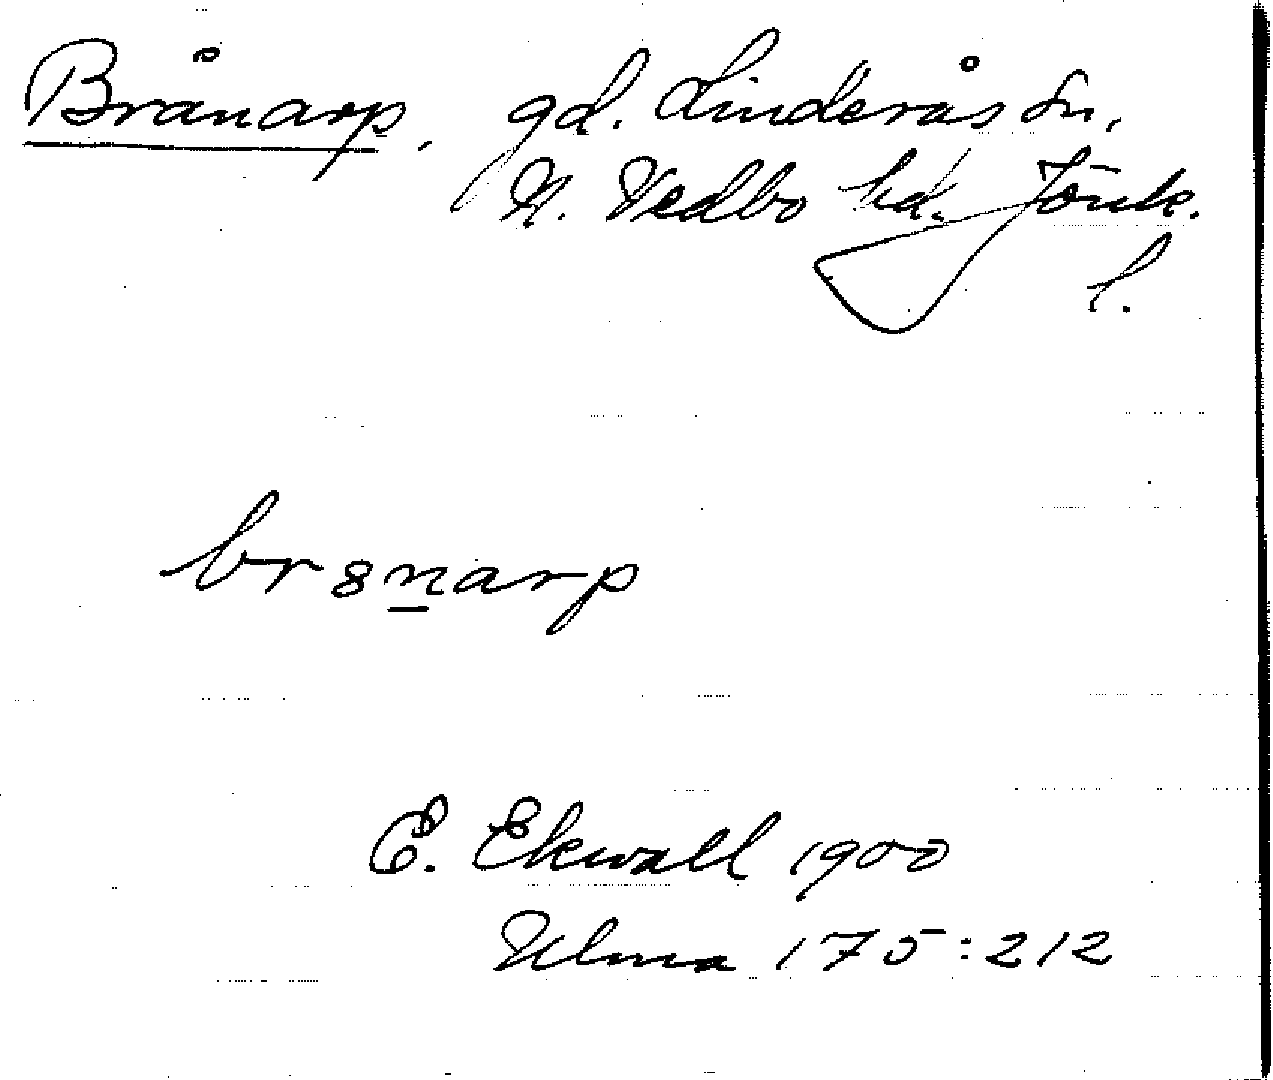 Brånarp, gd. Linderås sn,
N. Vedbo hd. Jönk.
l.
br8narp
E. Ekwall 1900
Ulma 175:212